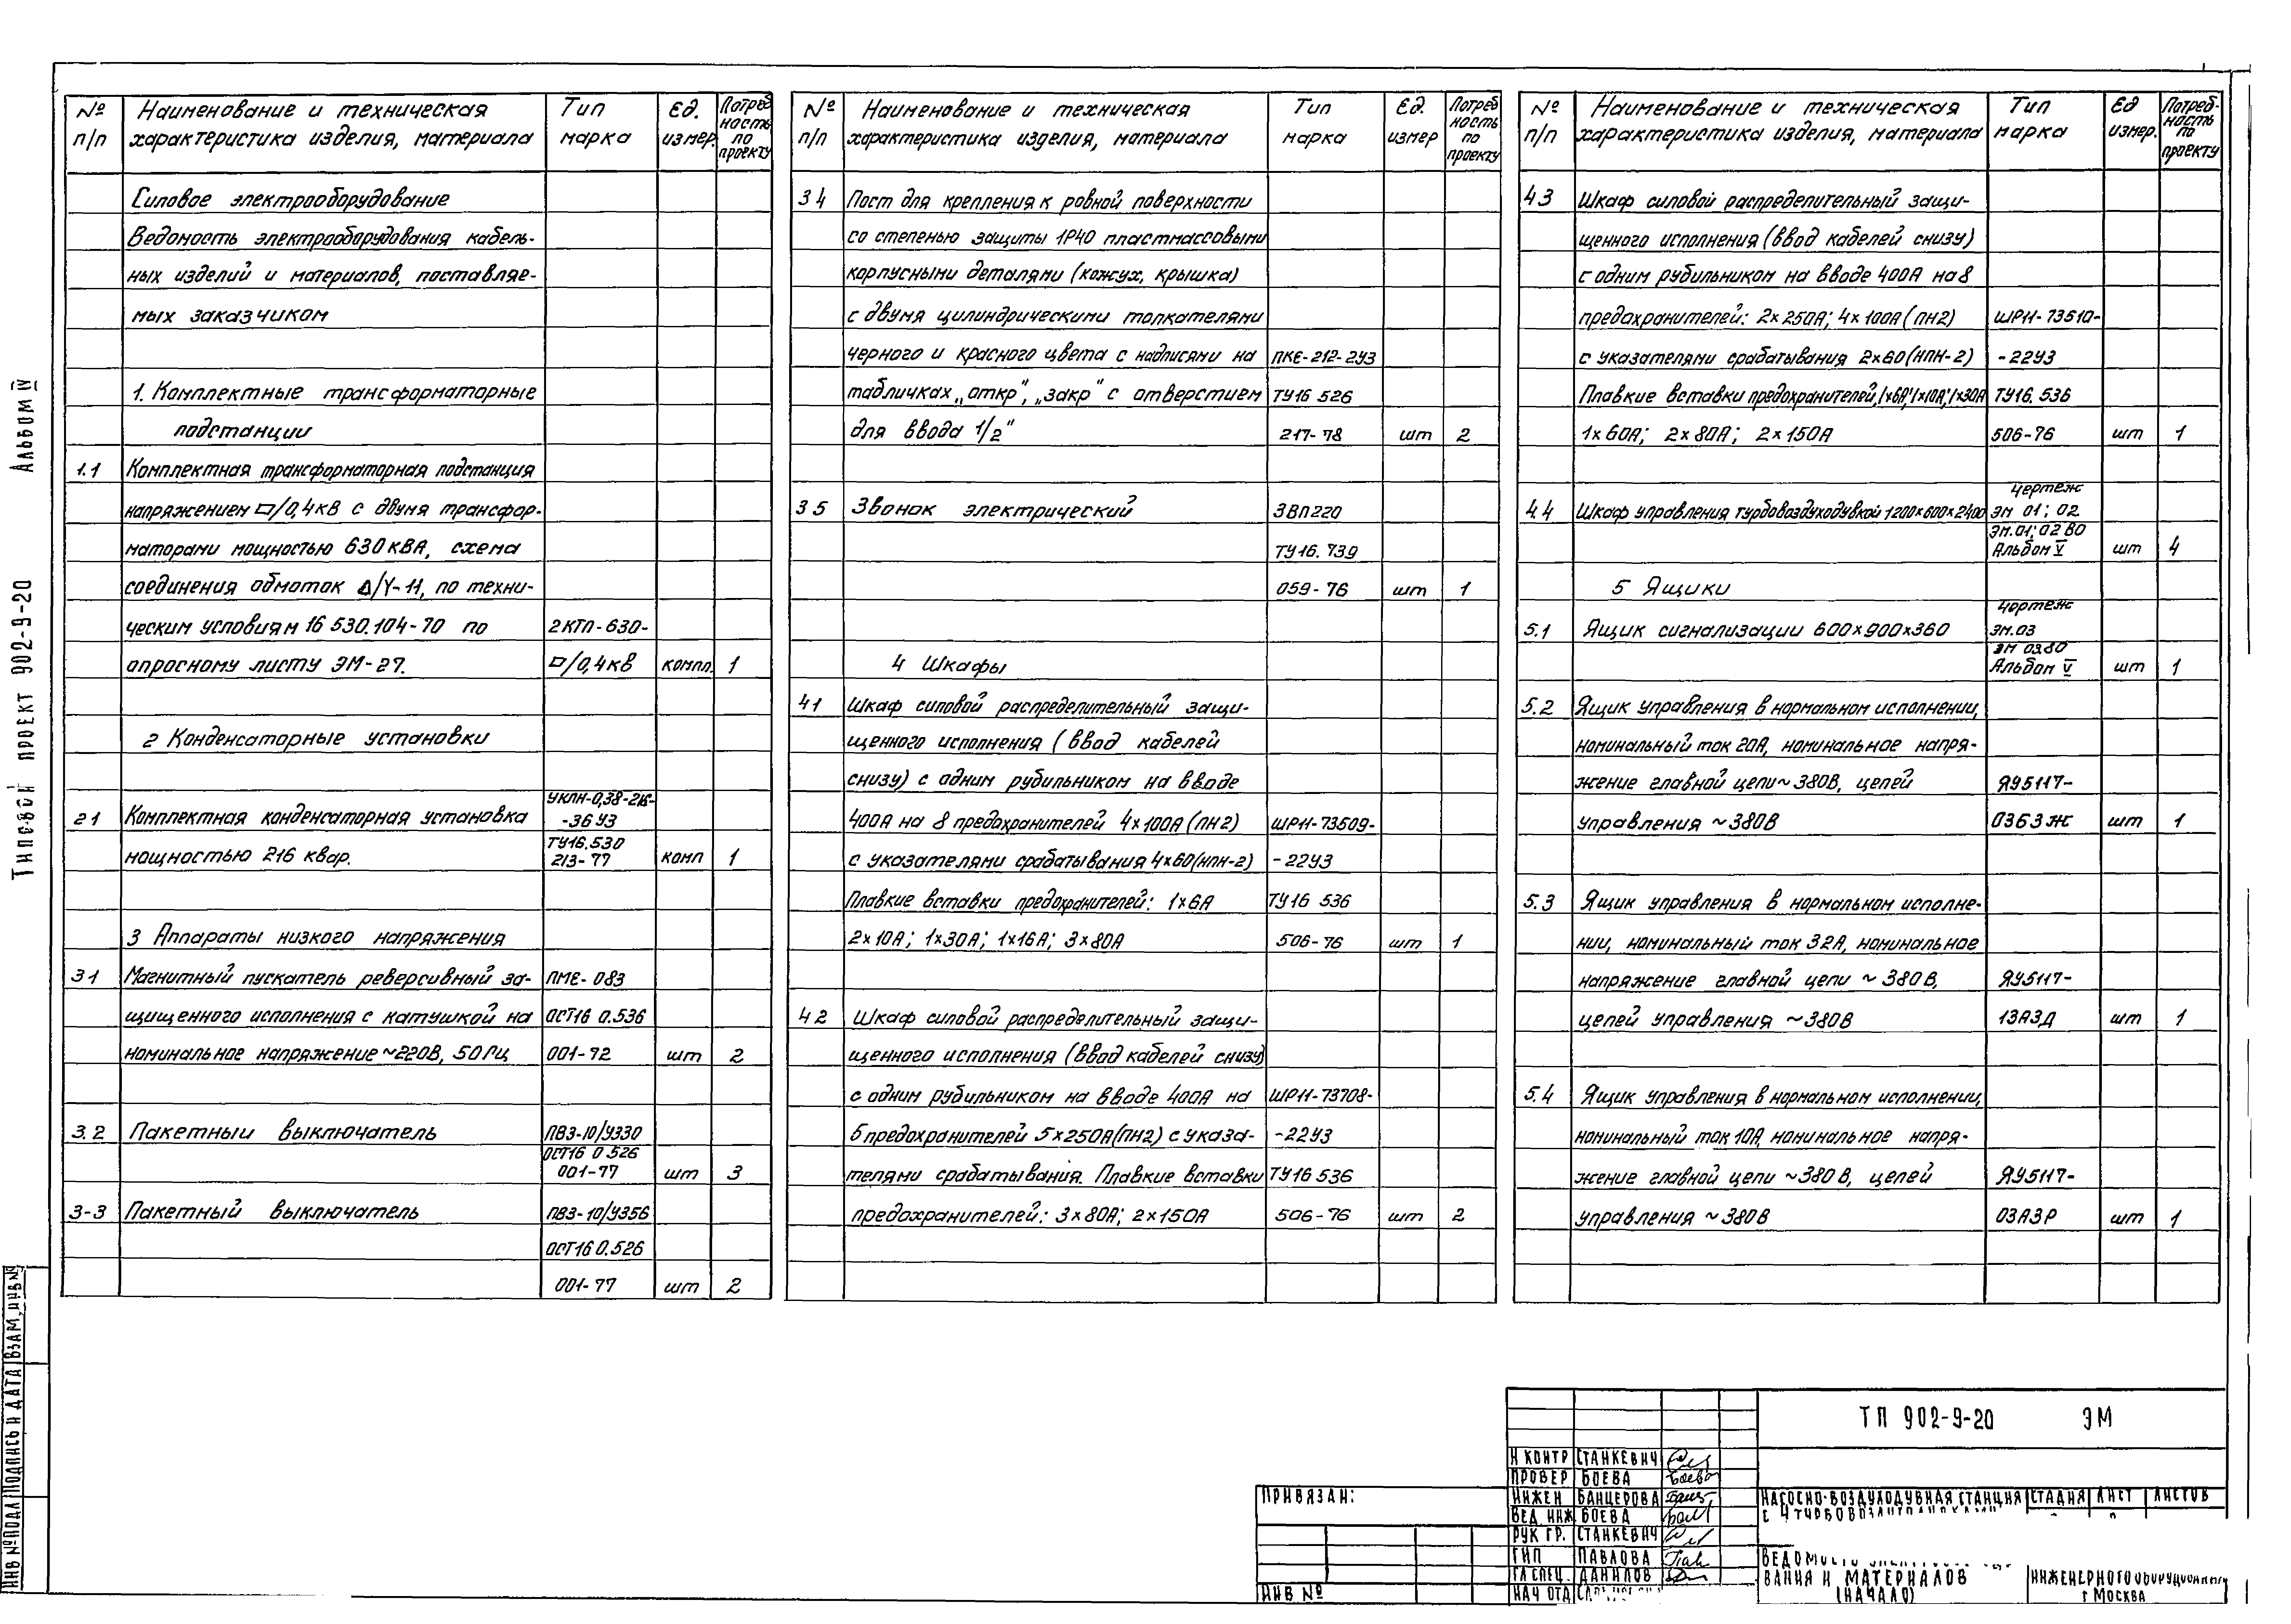 Альбом IV
Типовой проект 902-9-20
№ п/п
Наименование и техническая характеристика изделия, материала
Тип марка
Ед. измер.
Потребность по проекту
Силовое электрооборудование
Ведомость электрооборудования кабель-
ных изделий и материалов, поставляе-
мых заказчиком
1. Комплектные трансформаторные
подстанции
1.1 Комплектная трансформаторная подстанция
напряжением □/0,4кВ с двумя трансфор-
маторами мощностью 630кВА, схема
соединения обмоток Δ/Y-11, по техни-
ческим условиям 16 530.104-70 по 2КТП-630-
опросному листу ЭМ-27. □/0,4кВ компл. 1
2 Конденсаторные установки
УКЛН-0,38-216-
2 1 Комплектная конденсаторная установка -36У3
ТУ16.530
мощностью 216 квар. 213-77 комп 1
3 Аппараты низкого напряжения
3 1 Магнитный пускатель реверсивный за- ПМЕ-083
щищенного исполнения с катушкой на ОСТ16 0.536
номинальное напряжение ~220В, 50Гц 001-72 шт 2
3.2 Пакетный выключатель ПВ3-10/У330
ОСТ16 0.526
001-77 шт 3
3-3 Пакетный выключатель ПВ3-10/У356
ОСТ16 0.526
001-77 шт 2
№ п/п
Наименование и техническая характеристика изделия, материала
Тип марка
Ед. измер
Потребность по проекту
3 4 Пост для крепления к ровной поверхности
со степенью защиты 1Р40 пластмассовыми
корпусными деталями (кожух, крышка)
с двумя цилиндрическими толкателями
черного и красного цвета с надписями на ПКЕ-212-2У3
табличках „откр", „закр" с отверстием ТУ16 526
для ввода 1/2" 217-78 шт 2
3 5 Звонок электрический ЗВП220
ТУ16.739
059-76 шт 1
4 Шкафы
4 1 Шкаф силовой распределительный защи-
щенного исполнения (ввод кабелей
снизу) с одним рубильником на вводе
400А на 8 предохранителей 4х100А (ПН2) ШР11-73509-
с указателями срабатывания 4х60(НПН-2) -22У3
Плавкие вставки предохранителей: 1х6А ТУ16 536
2х10А; 1х30А; 1х16А; 3х80А 506-76 шт 1
4 2 Шкаф силовой распределительный защи-
щенного исполнения (ввод кабелей снизу)
с одним рубильником на вводе 400А на ШР11-73708-
5 предохранителей 5х250А(ПН2) с указа- -22У3
телями срабатывания. Плавкие вставки ТУ16 536
предохранителей: 3х80А; 2х150А 506-76 шт 2
№ п/п
Наименование и техническая характеристика изделия, материала
Тип марка
Ед измер.
Потреб-ность по проекту
4 3 Шкаф силовой распределительный защи-
щенного исполнения (ввод кабелей снизу)
с одним рубильником на вводе 400А на 8
предохранителей: 2х250А; 4х100А (ПН2) ШР11-73510-
с указателями срабатывания 2х60(НПН-2) -22У3
Плавкие вставки предохранителей, 1х6А; 1х10А; 1х30А ТУ16. 536
1х60А; 2х80А; 2х150А 506-76 шт 1
Чертеж
4.4 Шкаф управления турбовоздуходувкой 1200х600х2400 ЭМ 01; 02
ЭМ.01; 02 ВО
Альбом V шт 4
5 Ящики
Чертеж
5.1 Ящик сигнализации 600х900х360 ЭМ.03
ЭМ 03.ВО
Альбом V шт 1
5.2 Ящик управления в нормальном исполнении,
номинальный ток 20А, номинальное напря-
жение главной цепи ~ 380В, цепей ЯУ5117-
управления ~380В 03Б3Ж шт 1
5.3 Ящик управления в нормальном исполне-
нии, номинальный ток 32А, номинальное
напряжение главной цепи ~ 380 В, ЯУ5117-
цепей управления ~380В 13А3Д шт 1
5.4 Ящик управления в нормальном исполнении,
номинальный ток 10А, номинальное напря-
жение главной цепи ~380 В, цепей ЯУ5117-
управления ~380В 03А3Р шт 1
ИНВ № ПОДЛ ПОДПИСЬ И ДАТА ВЗАМ. ИНВ №
ПРИВЯЗАН:
ИНВ №
Н КОНТР СТАНКЕВИЧ
ПРОВЕР БОЕВА
ИНЖЕН БАНЦЕРОВА
ВЕД ИНЖ БОЕВА
РУК ГР. СТАНКЕВИЧ
ГИП ПАВЛОВА
ГЛ СПЕЦ. ДАНИЛОВ
НАЧ ОТД
ТП 902-9-20 ЭМ
НАСОСНО-ВОЗДУХОДУВНАЯ СТАНЦИЯ СТАДИЯ ЛИСТ ЛИСТОВ
ВАНИЯ И МАТЕРИАЛОВ
(НАЧАЛО)
ИНЖЕНЕРНОГО ОБОРУДОВАНИЯ
г МОСКВА